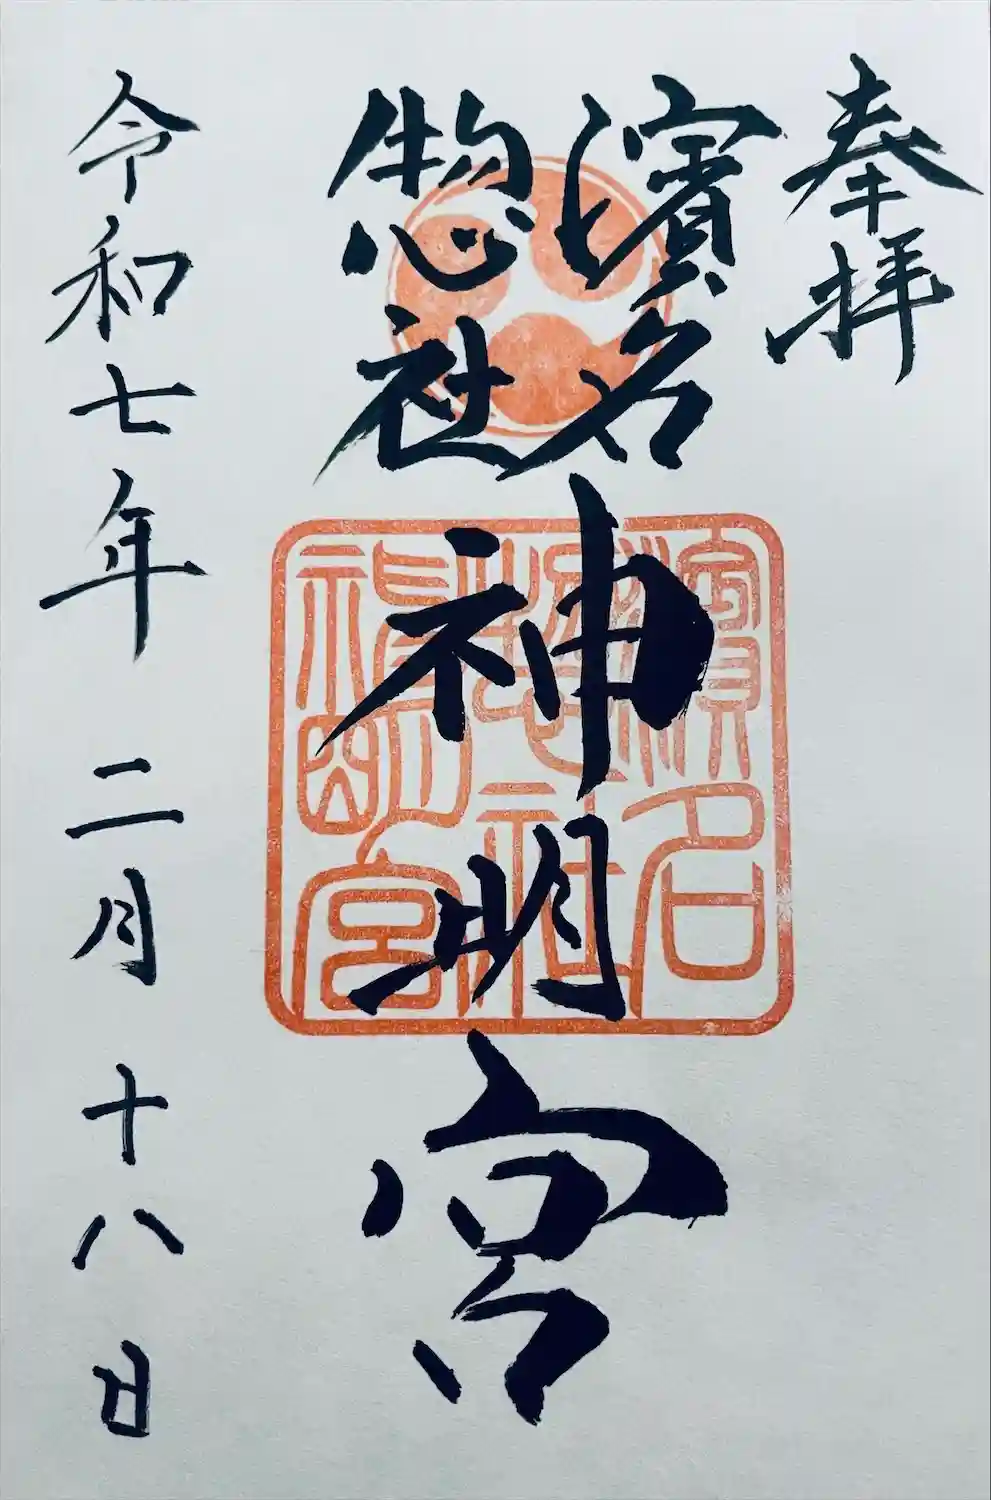 奉拝
濱名
惣社
神明宮
令和七年 二月 十八日
濱名
社
神明宮